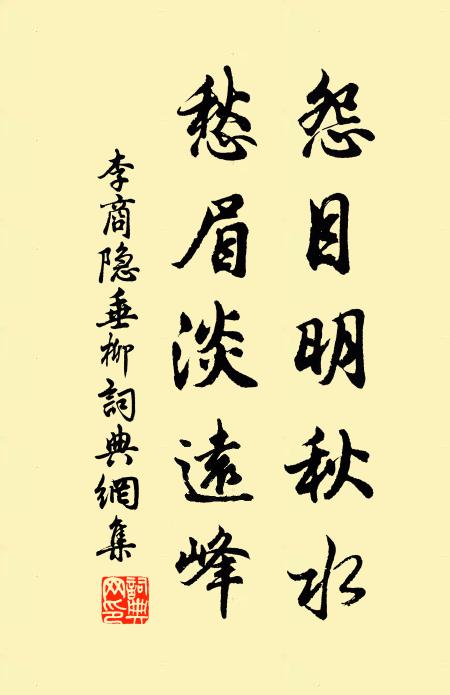 怨目明秋水
愁眉淡遠峰
李商隐垂柳詞典網集